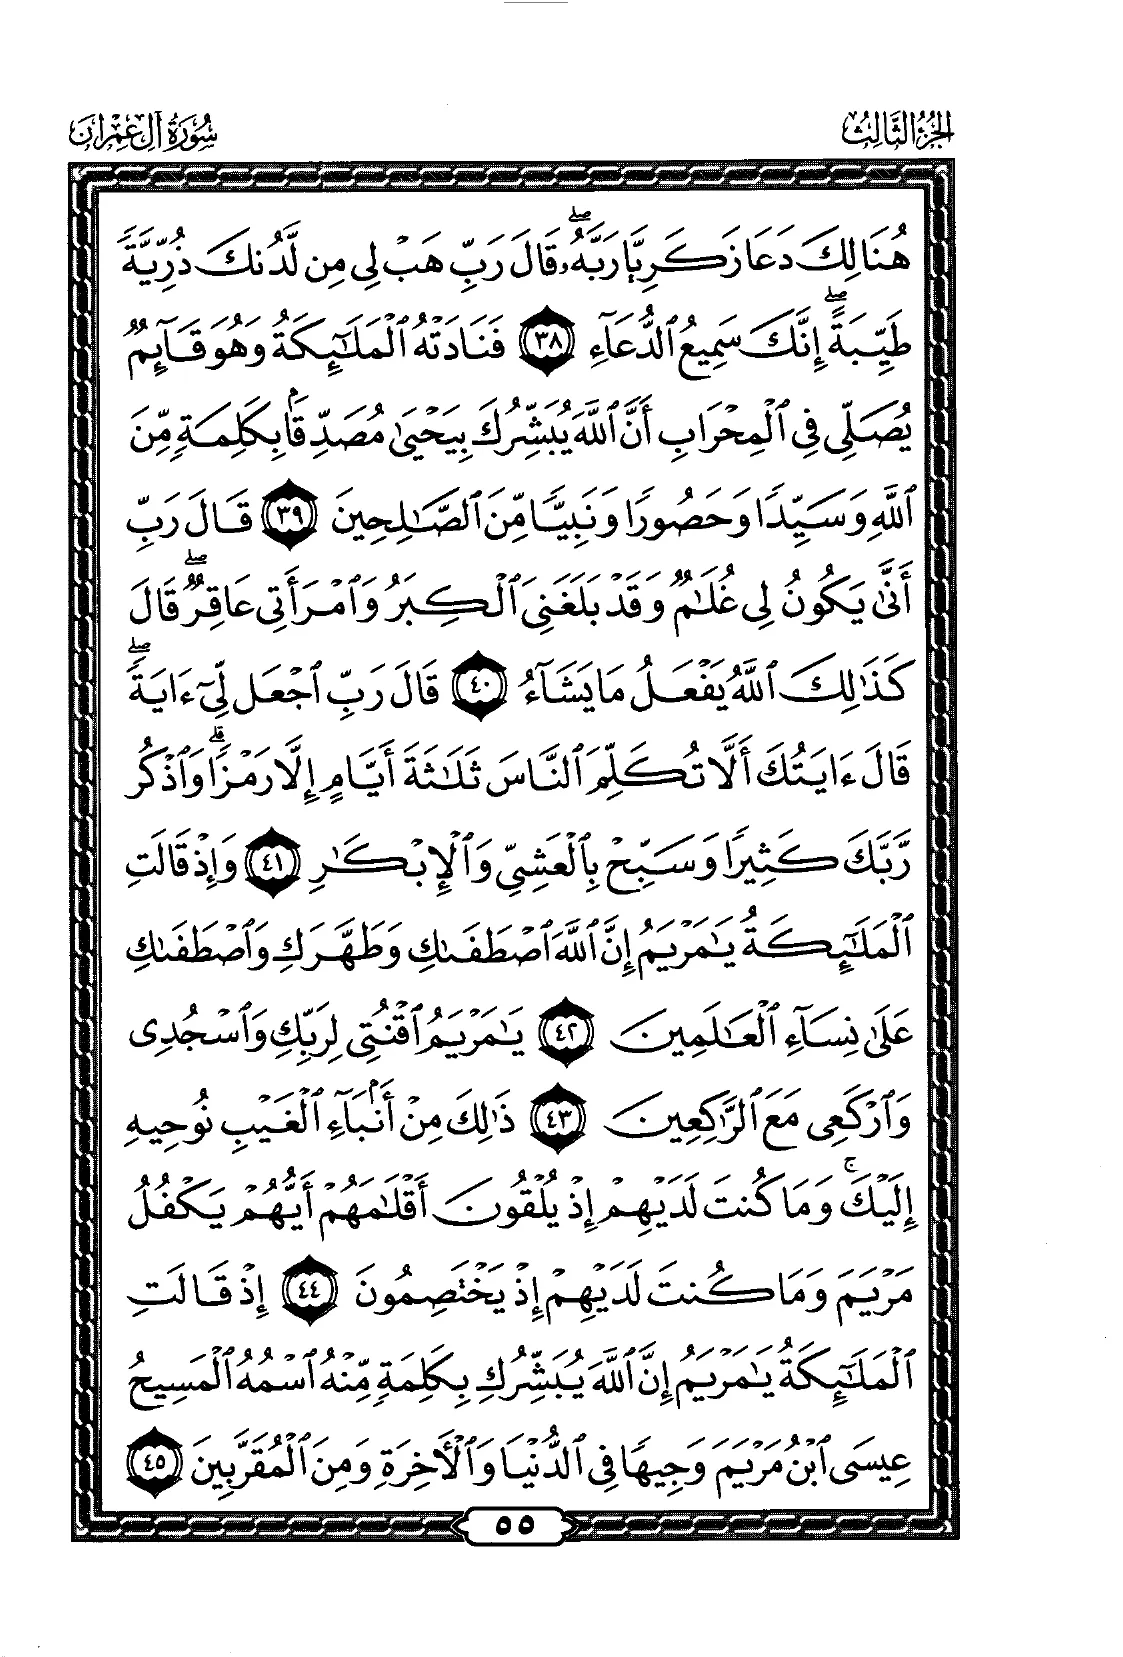 الجزء الثالث
سورة آل عمران
هُنَالِكَ دَعَا زَكَرِيَّا رَبَّهُۥۖ قَالَ رَبِّ هَبْ لِى مِن لَّدُنكَ ذُرِّيَّةً
طَيِّبَةًۖ إِنَّكَ سَمِيعُ ٱلدُّعَآءِ ٣٨ فَنَادَتْهُ ٱلْمَلَٰٓئِكَةُ وَهُوَ قَآئِمٌ
يُصَلِّى فِى ٱلْمِحْرَابِ أَنَّ ٱللَّهَ يُبَشِّرُكَ بِيَحْيَىٰ مُصَدِّقًۢا بِكَلِمَةٍ مِّنَ
ٱللَّهِ وَسَيِّدًا وَحَصُورًا وَنَبِيًّا مِّنَ ٱلصَّٰلِحِينَ ٣٩ قَالَ رَبِّ
أَنَّىٰ يَكُونُ لِى غُلَٰمٌ وَقَدْ بَلَغَنِىَ ٱلْكِبَرُ وَٱمْرَأَتِى عَاقِرٌۖ قَالَ
كَذَٰلِكَ ٱللَّهُ يَفْعَلُ مَا يَشَآءُ ٤٠ قَالَ رَبِّ ٱجْعَل لِّىٓ ءَايَةًۖ
قَالَ ءَايَتُكَ أَلَّا تُكَلِّمَ ٱلنَّاسَ ثَلَٰثَةَ أَيَّامٍ إِلَّا رَمْزًاۗ وَٱذْكُر
رَّبَّكَ كَثِيرًا وَسَبِّحْ بِٱلْعَشِىِّ وَٱلْإِبْكَٰرِ ٤١ وَإِذْ قَالَتِ
ٱلْمَلَٰٓئِكَةُ يَٰمَرْيَمُ إِنَّ ٱللَّهَ ٱصْطَفَىٰكِ وَطَهَّرَكِ وَٱصْطَفَىٰكِ
عَلَىٰ نِسَآءِ ٱلْعَٰلَمِينَ ٤٢ يَٰمَرْيَمُ ٱقْنُتِى لِرَبِّكِ وَٱسْجُدِى
وَٱرْكَعِى مَعَ ٱلرَّٰكِعِينَ ٤٣ ذَٰلِكَ مِنْ أَنۢبَآءِ ٱلْغَيْبِ نُوحِيهِ
إِلَيْكَۚ وَمَا كُنتَ لَدَيْهِمْ إِذْ يُلْقُونَ أَقْلَٰمَهُمْ أَيُّهُمْ يَكْفُلُ
مَرْيَمَ وَمَا كُنتَ لَدَيْهِمْ إِذْ يَخْتَصِمُونَ ٤٤ إِذْ قَالَتِ
ٱلْمَلَٰٓئِكَةُ يَٰمَرْيَمُ إِنَّ ٱللَّهَ يُبَشِّرُكِ بِكَلِمَةٍ مِّنْهُ ٱسْمُهُ ٱلْمَسِيحُ
عِيسَى ٱبْنُ مَرْيَمَ وَجِيهًا فِى ٱلدُّنْيَا وَٱلْءَاخِرَةِ وَمِنَ ٱلْمُقَرَّبِينَ ٤٥
٥٥